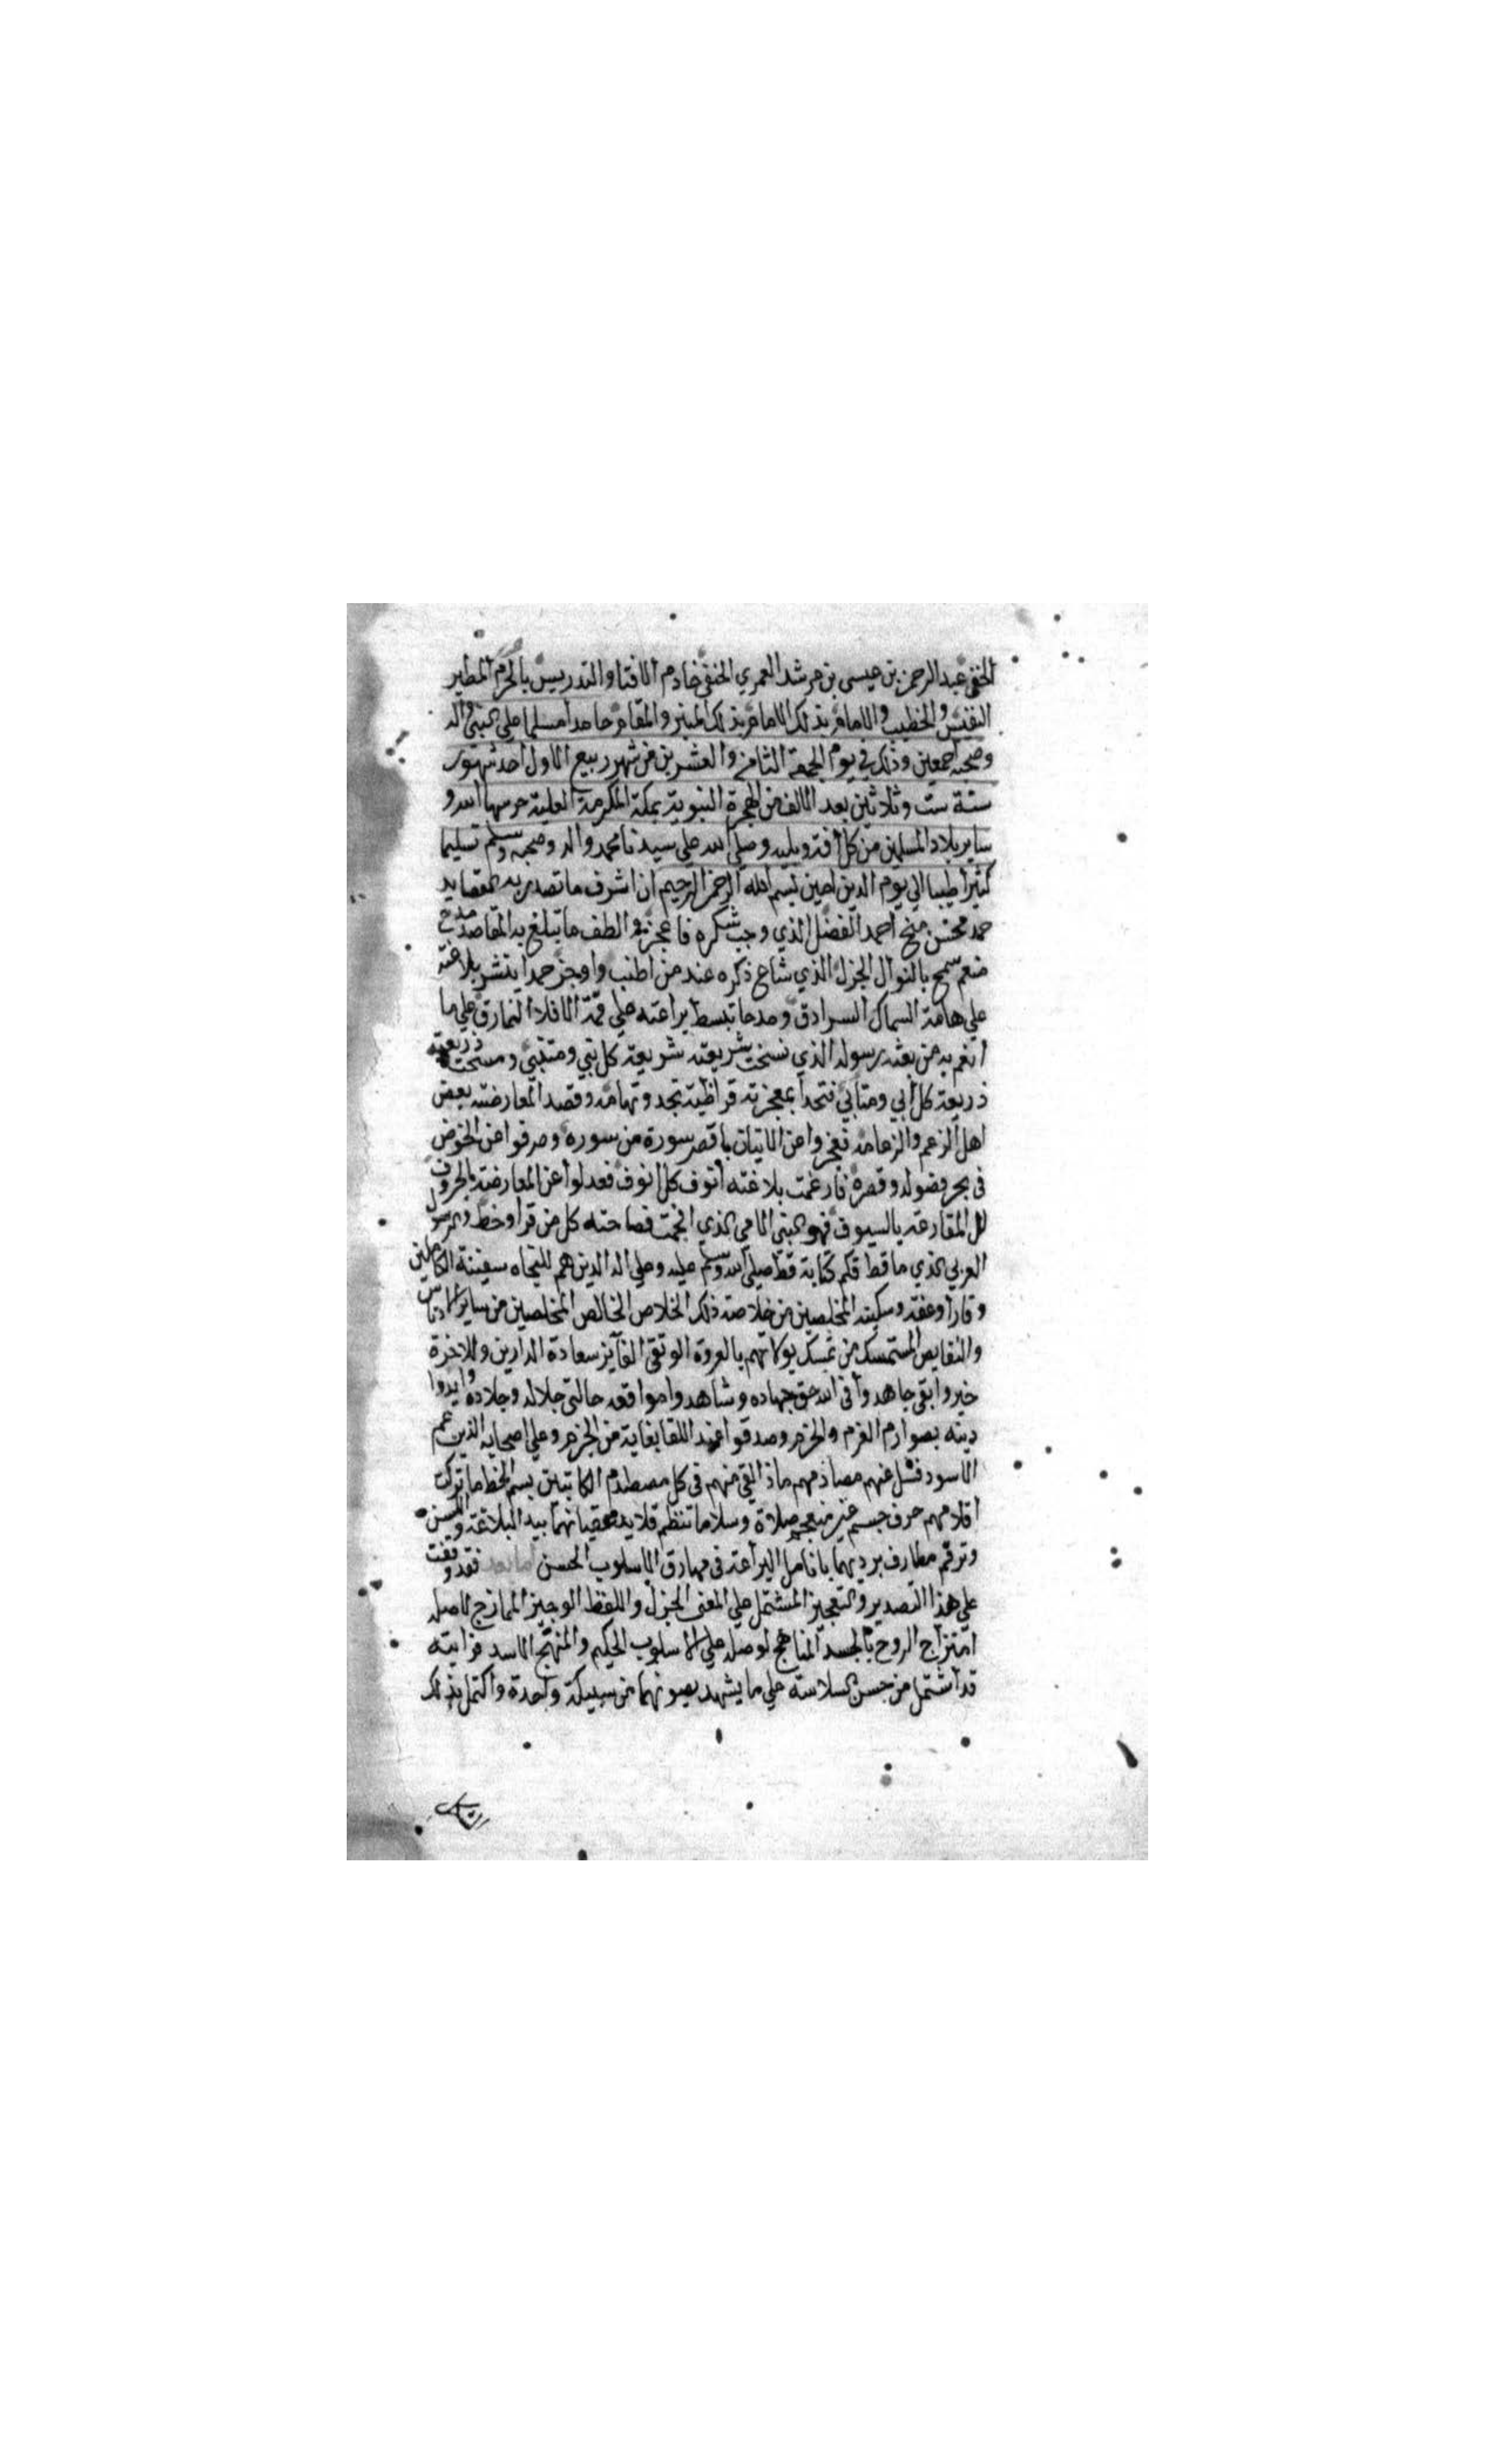 الخفي عبد الرحمن بن عيسى بن مرشد العمري الحنفي خادم الافتا والتدريس بالحرم المطير
النفيس والخطيب والامام بذلك المنبر والمقام حامدا مسلما علي النبي واله
وصحبه اجمعين وذلك في يوم الجمعة الثامن والعشرين من شهر ربيع الاول احد شهور
ستة ست وثلاثين بعد الالف من الهجرة النبوية بمكة المكرمة العلية حرسها الله و
ساير بلاد المسلمين من كل افة وبليه وصلي الله علي سيدنا محمد واله وصحبه وسلم تسليما
كثيرا طيبا الي يوم الدين امين بسم الله الرحمن الرحيم ان اشرف ما تصدر به القصايد
حمد محسن منح احمد الفضل الذي وجب شكره فاعجز والطف ما تبلغ به المقاصد مدح
منعم سمح بالنوال الجزل الذي شاع ذكره عند من اطنب واوجز حمدا ينشر بلاغته
علي هامة السماك السرادق ومدحا تبسط براعته علي قمة الافلاك النمارق علي ما
انعم به من بعثه رسوله الذي نسخت شريعته شريعة كل نبي ومتنبي ومسخت ذريعته
ذريعة كل ابي ومتابي فتحدا بمعجزته قراظبة نجد وتهامه وقصد المعارضته بعض
اهل الزعم والزعامه فعجزوا عن الاتيان باقصر سورة من سوره وصرفوا عن الخوض
في بحر فصوله وقصره فارغمت بلاغته انوف كل انوف فعدلوا عن المعارضة بالحروف
الي المقارعه بالسيوف فهو النبي الامي الذي افحمت فصاحته كل من قرا وخط والرسول
العربي الذي ما قط قلم كتابة قط صلي الله وسلم عليه وعلي اله الذين هم للنجاه سفينة الكاملين
وقارا وعفة وسكينه المخلصين من خلاصة ذلك الخلاص الخالص المخلصين من ساير الادناس
والنقايص المستمسك من تمسك بولاتهم بالعروة الوثقى الفايز سعادة الدارين وللاخرة
خير وابقي جاهدوا في الله حق جهاده وشاهدوا مواقعه حالتي جلاله وجلاده وايدوا
دينه بصوارم العزم والحزم وصدقوا عند اللقا بغاية من الجزم وعلي اصحابه الذين هم
الاسود فسل عنهم مصادمهم ماذا القي منهم في كل مصطدم الكاتبين بسم الخط ما تركت
اقلامهم حرف جسم غير منعجم صلاة وسلاما تنتظم قلايد عقيانهما بيد البلاغة واللسن
وترقم مطارف برديهما بانامل اليراعة في مهارق الاسلوب الحسن اما بعد فقد وقفت
علي هذا التصدير والتعجيز المشتمل علي المعني الجزل واللفظ الوجيز الممازج لاصله
امتزاج الروح بالجسد المناهج لوصله علي الاسلوب الحكيم والمنهج الاسد فرايته
قد اشتمل من حسن السلاسته علي ما يشهد بصونهما من سبيكة واحدة واكتمل بذلك